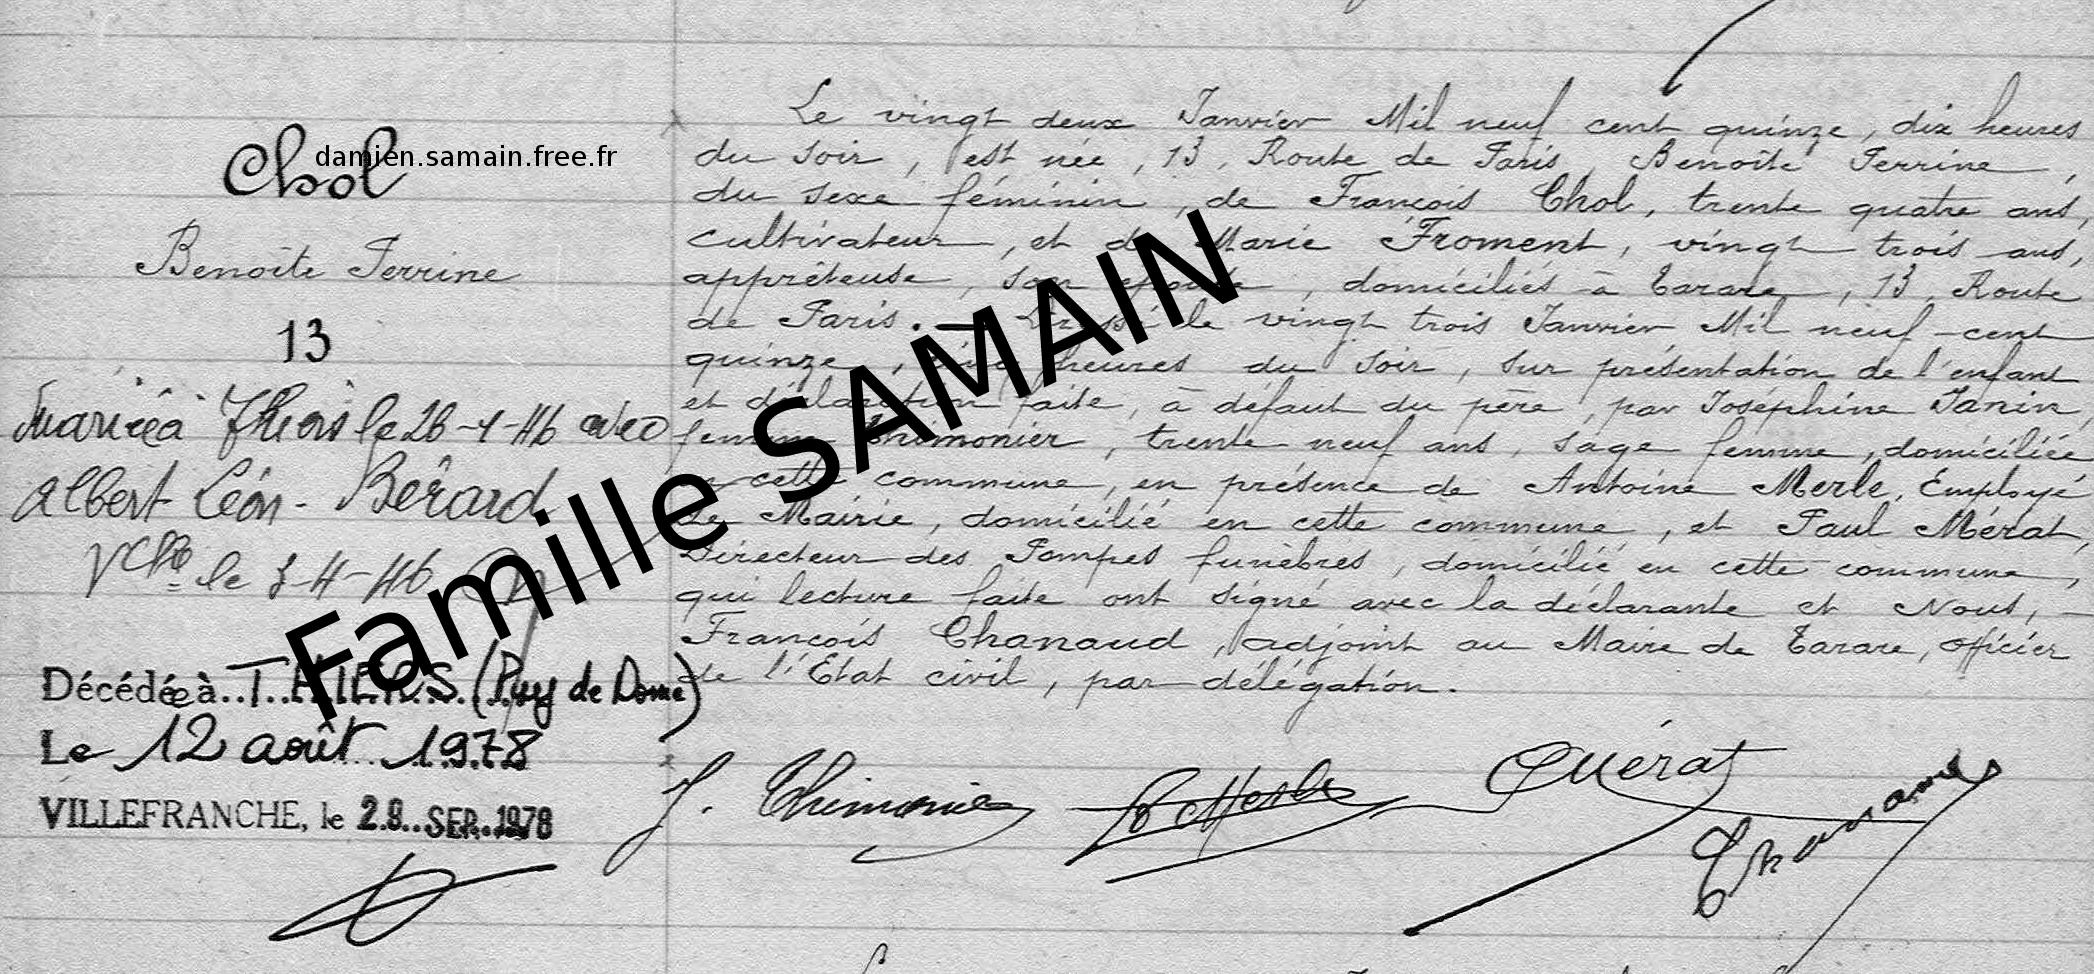 Chol
damien.samain.free.fr
Benoîte Perrine
13
Mariée à Thiers le 26-1-46 avec
Albert Léon Bérard
le 3-4-46
Décédée à THIERS (Puy de Dome)
Le 12 août 1978
VILLEFRANCHE, le 28 SEP. 1978
Le vingt deux Janvier Mil neuf cent quinze, dix heures
du soir, est née, 13, Route de Paris, Benoîte Perrine,
du sexe féminin, de François Chol, trente quatre ans,
cultivateur, et de Marie Froment, vingt trois ans,
apprêteuse, son épouse, domiciliés à Tarare, 13, Route
de Paris. — Dressé le vingt trois Janvier Mil neuf-cent
quinze, heures du soir, sur présentation de l'enfant
et déclaration faite, à défaut du père, par Joséphine Janin,
femme Thimonier, trente neuf ans, sage femme, domiciliée
en cette commune, en présence de Antoine Merle, Employé
de Mairie, domicilié en cette commune, et Paul Mérat,
Directeur des Pompes funèbres, domicilié en cette commune,
qui lecture faite ont signé avec la déclarante et Nous, —
François Chanaud, adjoint au Maire de Tarare, officier
de l'Etat civil, par délégation.
J. Thimonier
Merle
Mérat
Chanaud
Famille SAMAIN